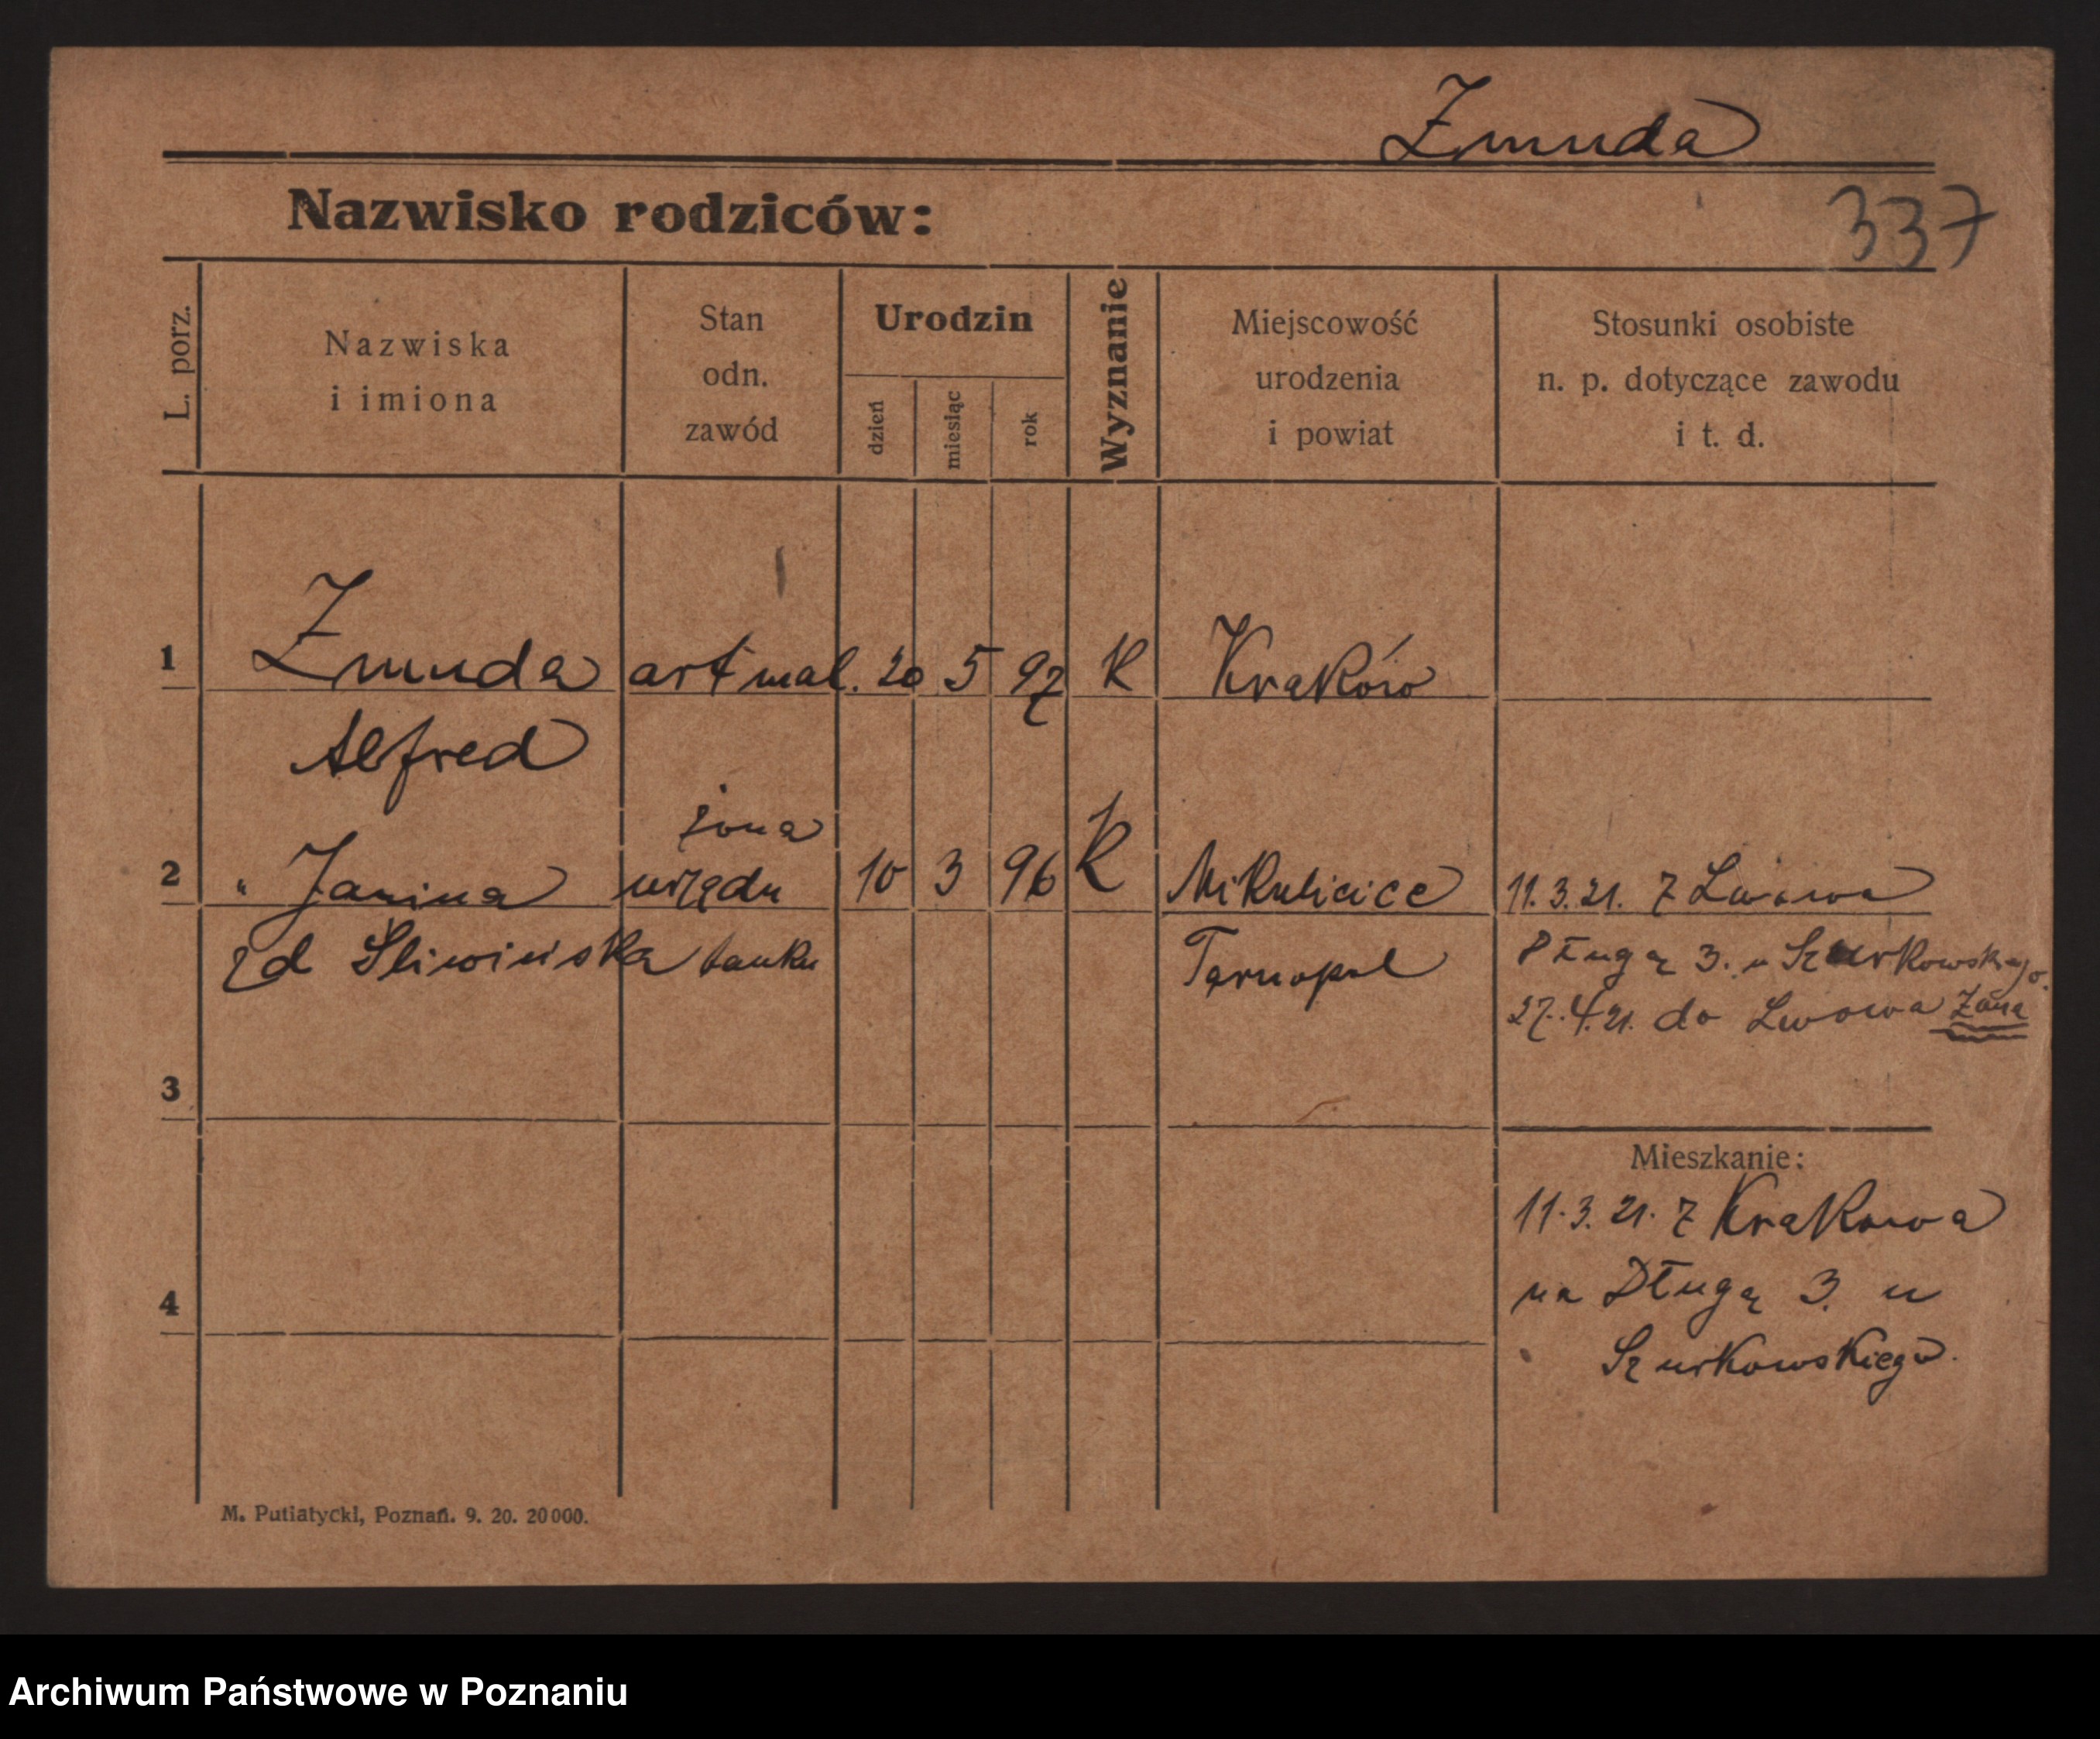 Zmuda
337
Nazwisko rodziców:
L. porz.
Nazwiska
i imiona
Stan
odn.
zawód
Urodzin
dzień
miesiąc
rok
Wyznanie
Miejscowość
urodzenia
i powiat
Stosunki osobiste
n. p. dotyczące zawodu
i t. d.
1 Zmuda art mal. 20 5 97 K Kraków
Alfred
żona
2 " Janina urzędn 10 3 96 K 11.3.21. z Lwowa
zd Śliwińska banku Tarnopol Długą 3. u Szurkowskiego.
27.4.21. do Lwowa żona
3
Mieszkanie:
11.3.21. z Krakowa
na Długą 3. u
4
Szurkowskiego.
M. Putiatycki, Poznań. 9. 20. 20000.
Archiwum Państwowe w Poznaniu